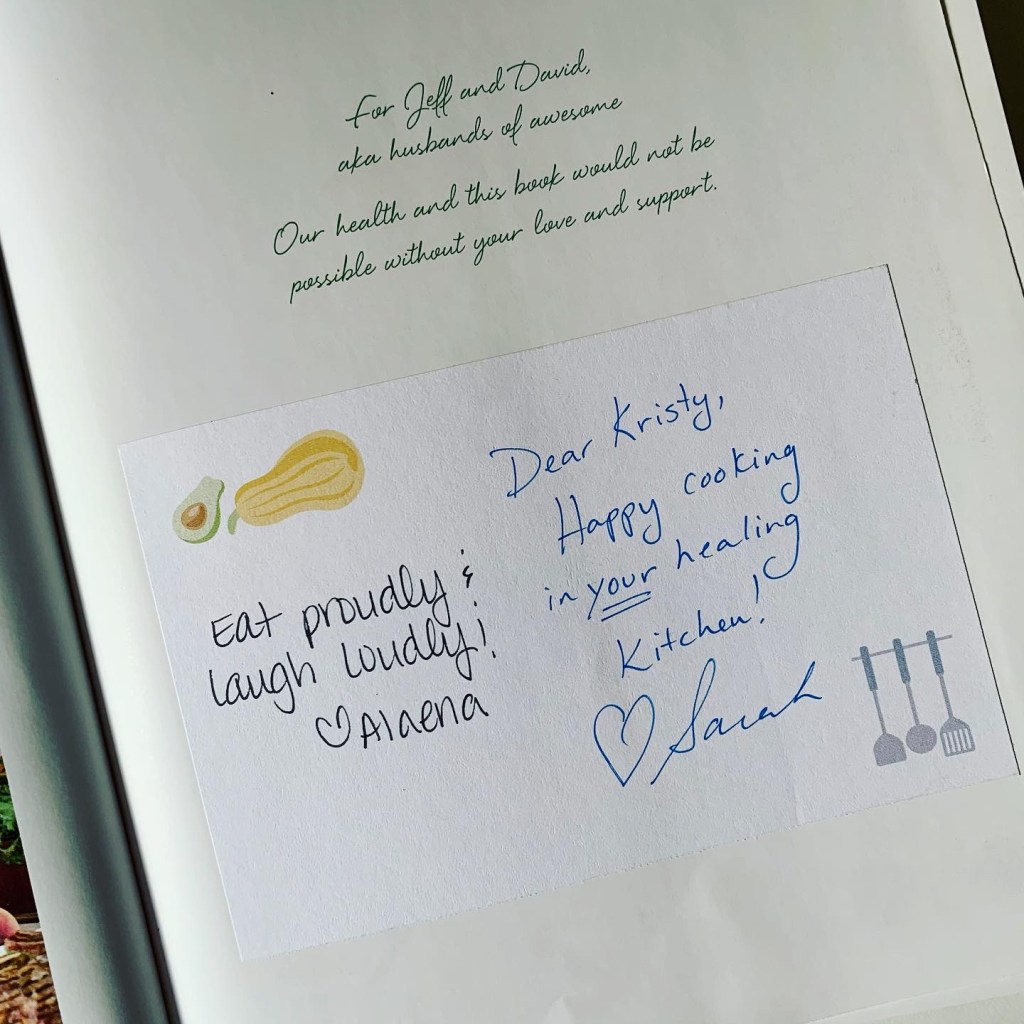 For Jeff and David,
aka husbands of awesome
Our health and this book would not be
possible without your love and support.
Eat proudly &
laugh loudly!
♡ Alaena
Dear Kristy,
Happy cooking
in your healing
Kitchen!
♡ Sarah